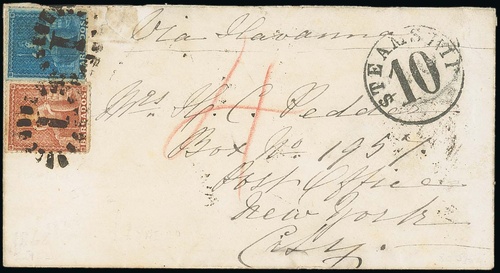 Via Havanna
STEAMSHIP
10
BARBADOS
1
4
1
Mrs H. C. Pedder
Box No 1957
Post Office
New York
City.